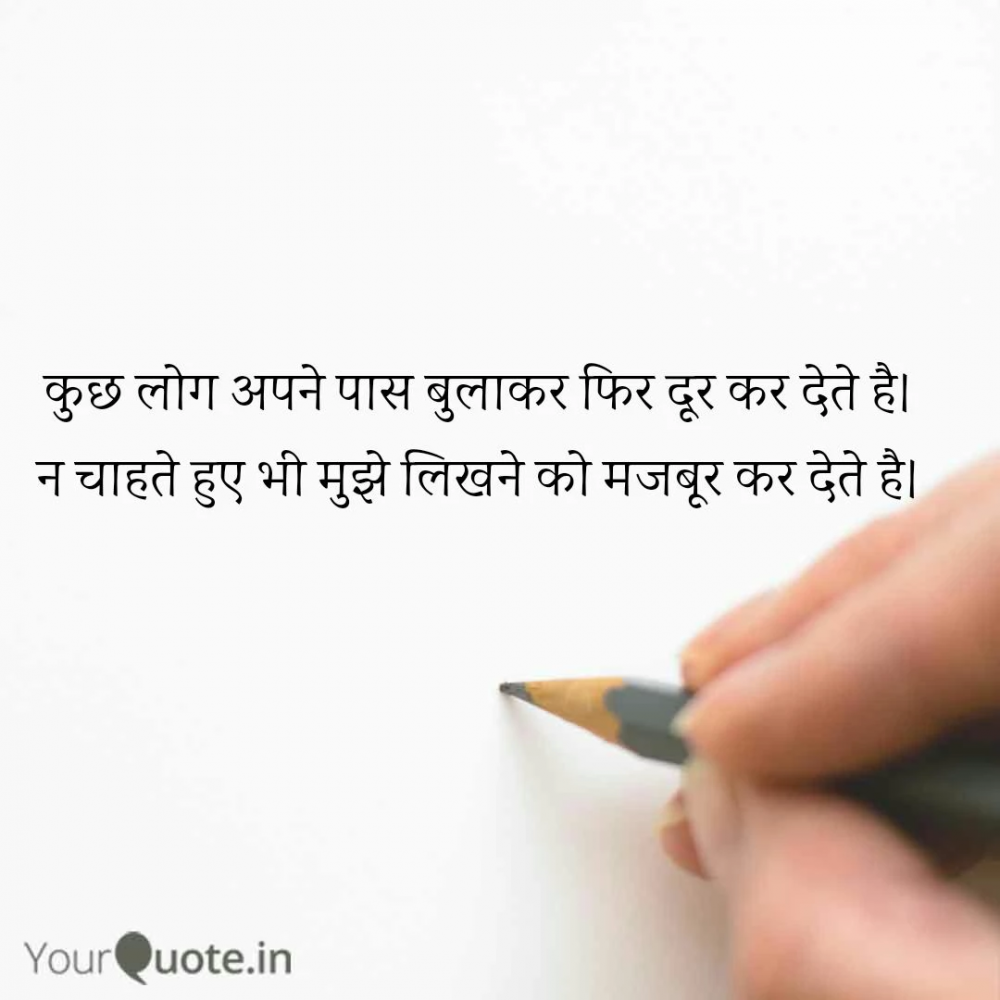 कुछ लोग अपने पास बुलाकर फिर दूर कर देते है।
न चाहते हुए भी मुझे लिखने को मजबूर कर देते है।
YourQuote.in